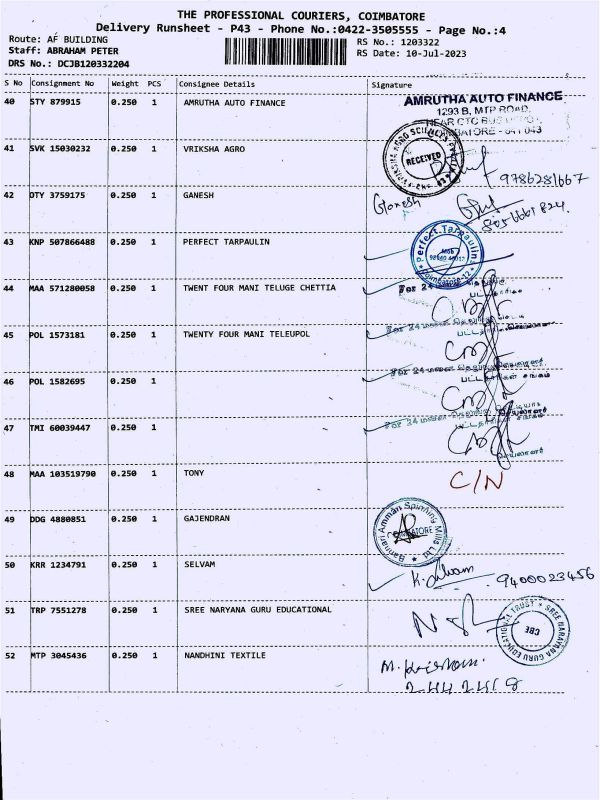 THE PROFESSIONAL COURIERS, COIMBATORE
Delivery Runsheet - P43 - Phone No.:0422-3505555 - Page No.:4
Route: AF BUILDING
RS No.: 1203322
Staff: ABRAHAM PETER
RS Date: 10-Jul-2023
DRS No.: DCJB120332204
S No Consignment No Weight PCS Consignee Details Signature
40 STY 879915 0.250 1 AMRUTHA AUTO FINANCE
AMRUTHA AUTO FINANCE
1293 B, MTP ROAD,
41 SVK 15030232 0.250 1 VRIKSHA AGRO
RECEIVED
9786281667
42 DTY 3759175 0.250 1 GANESH
Ganesh
43 KNP 507866488 0.250 1 PERFECT TARPAULIN
Perfect Tarpaulin
44 MAA 571280058 0.250 1 TWENT FOUR MANI TELUGE CHETTIA
For 24
45 POL 1573181 0.250 1 TWENTY FOUR MANI TELEUPOL
For 24
46 POL 1582695 0.250 1
For 24
47 TMI 60039447 0.250 1
For 24
48 MAA 103519790 0.250 1 TONY
C/N
49 DDG 4880851 0.250 1 GAJENDRAN
Bannari Amman Spinning Mills Ltd
50 KRR 1234791 0.250 1 SELVAM
9400023456
51 TRP 7551278 0.250 1 SREE NARYANA GURU EDUCATIONAL
SREE NARAYANA GURU EDUCATIONAL TRUST
CBE
52 MTP 3045436 0.250 1 NANDHINI TEXTILE